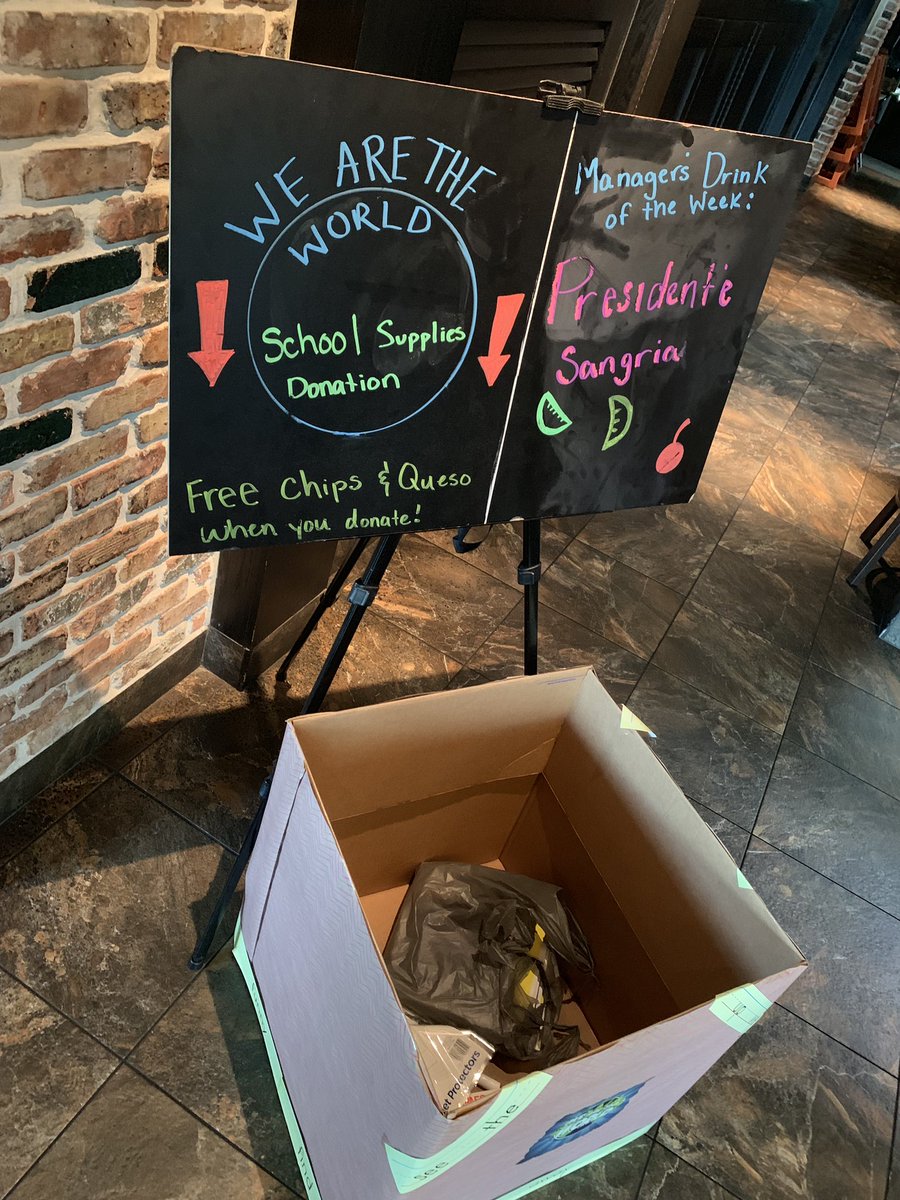 WE ARE THE
WORLD
School Supplies
Donation
Free Chips & Queso
when you donate!
Manager's Drink
of the Week:
Presidente
Sangria
et Protectors
see the
find